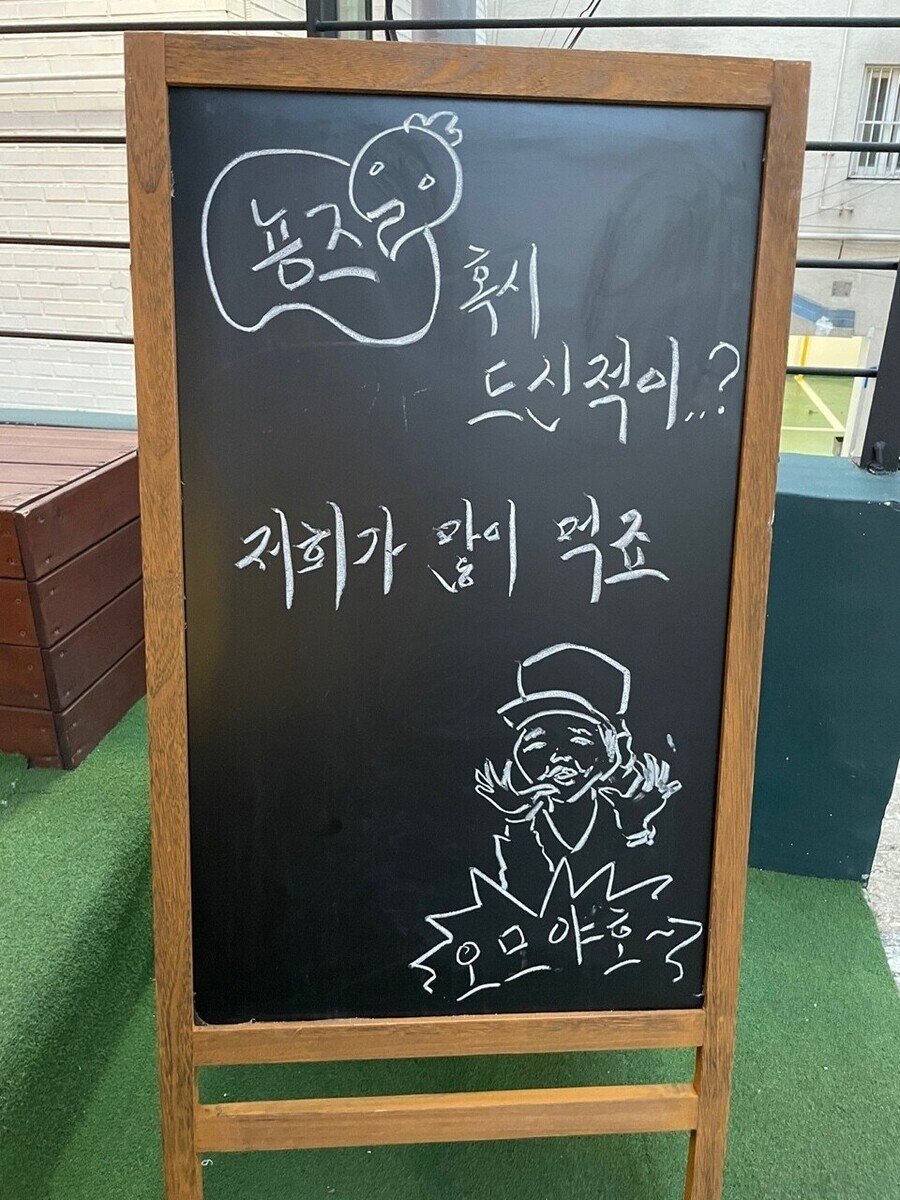 뇽즈
혹시
드신적이..?
저희가 많이 먹죠
오므야호~